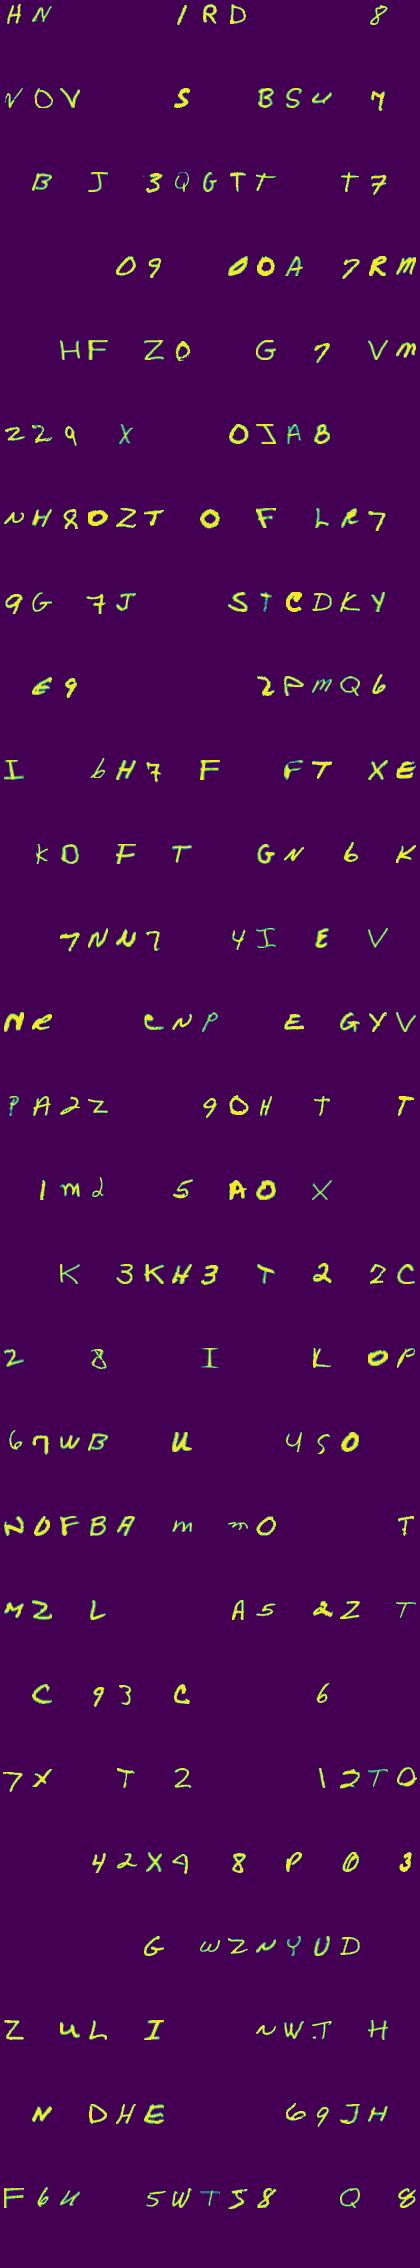 HN 1RD 8
NOV S BSU 7
B J 3QGTT T7
09 00A 7RM
HF Z0 G 7 VM
229 X 0JAB
NH80ZT 0 F LR7
9G 7J STCDKY
E9 2PMQ6
I 6H7 F FT XE
KD F T GN 6 K
7NN7 4I E V
NR CNP E GYV
PA2Z 90H T T
1M2 5 A0 X
K 3KH3 T 2 2C
2 8 I K 0P
67WB U 4S0
NDFBA M M0 T
MZ L A5 2Z T
C 93 C 6
7X T 2 12T0
42X9 8 P 0 3
G WZNYUD
Z UL I NWJ H
N DHE 69JH
F6U 5WTS8 Q 8